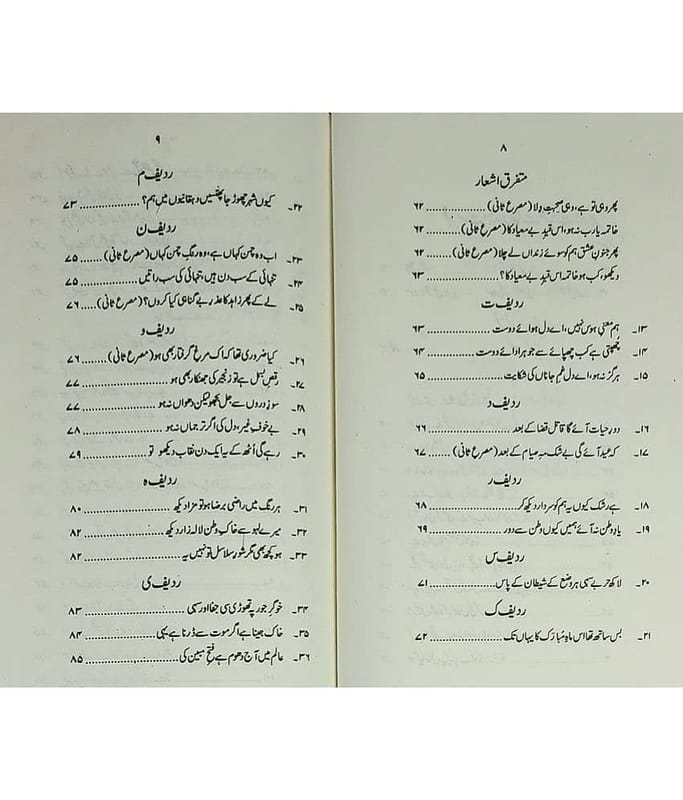 ۸
متفرق اشعار
پھر وہی تو ہے، وہی صحبتِ ولا (مصرع ثانی) .......... ۶۲
خاتمہ یا رب نہ ہو، اس قیدِ بے معیاد کا (مصرع ثانی) .......... ۶۲
پھر جنونِ عشق ہم کو سوئے زنداں لے چلا (مصرع ثانی) .......... ۶۲
دیکھو کب ہو خاتمہ اس قیدِ بے معیاد کا؟ .......... ۶۳
ردیف ت
۱۳۔ ہم معنیٔ ہوس نہیں، اے دل ہوائے دوست .......... ۶۳
۱۴۔ چھپتی ہے کب چھپائے سے جو ہر ادائے دوست .......... ۶۴
۱۵۔ ہرگز نہ ہو، اے دل غمِ جاناں کی شکایت .......... ۶۵
ردیف د
۱۶۔ دورِ حیات آئے گا قاتل قضا کے بعد .......... ۶۶
۱۷۔ کہ عید آئے گی بے شک مہِ صیام کے بعد (مصرع ثانی) ..... ۶۷
ردیف ر
۱۸۔ ہے رشک کیوں یہ ہم کو سرِ دار دیکھ کر .......... ۶۸
۱۹۔ یادِ وطن نہ آئے ہمیں کیوں وطن سے دور .......... ۶۹
ردیف س
۲۰۔ لاکھ حربے سہی ہر وضع کے شیطان کے پاس .......... ۷۱
ردیف ک
۲۱۔ بس ساتھ تھا اس ماہِ مُبارَک کا یہاں تک .......... ۷۲
۹
ردیف م
۲۲۔ کیوں شہر چھوڑ جا پھنسیں دہقانیوں میں ہم؟ .......... ۷۳
ردیف ن
۲۳۔ اب وہ چمن کہاں ہے، وہ رنگِ چمن کہاں (مصرع ثانی) .......... ۷۵
۲۴۔ تنہائی کے سب دن ہیں، تنہائی کی سب راتیں .......... ۷۵
۲۵۔ لے کے پھر زاہد کا عذرِ بے گناہی کیا کروں؟ (مصرع ثانی) ...... ۷۶
ردیف و
۲۶۔ کیا ضروری تھا کہ اک مرغ گرفتار بھی ہو (مصرع ثانی) ....... ۷۶
۲۷۔ رقصِ بسمل ہے تو زنجیر کی جھنکار بھی ہو .......... ۷۷
۲۸۔ سوزِ دروں سے جل بجھو لیکن دھواں نہ ہو .......... ۷۷
۲۹۔ بے خوفِ غیر، دل کی اگر ترجماں نہ ہو .......... ۷۸
۳۰۔ رہے گی اُٹھ کے یہ ایک دن نقاب دیکھو تو .......... ۷۹
ردیف ہ
۳۱۔ ہر رنگ میں راضی برضا ہو تو مزا دیکھ .......... ۸۰
۳۲۔ میرے لہو سے خاکِ وطن لالہ زار دیکھ .......... ۸۲
۳۳۔ ہو کچھ بھی مگر شورِ سلاسل تو نہیں یہ .......... ۸۲
ردیف ی
۳۴۔ خوگرِ جور پہ تھوڑی سی جفا اور سہی .......... ۸۳
۳۵۔ خاک جینا ہے اگر موت سے ڈرنا ہے یہی .......... ۸۴
۳۶۔ عالم میں آج دھوم ہے فتحِ مبین کی .......... ۸۵